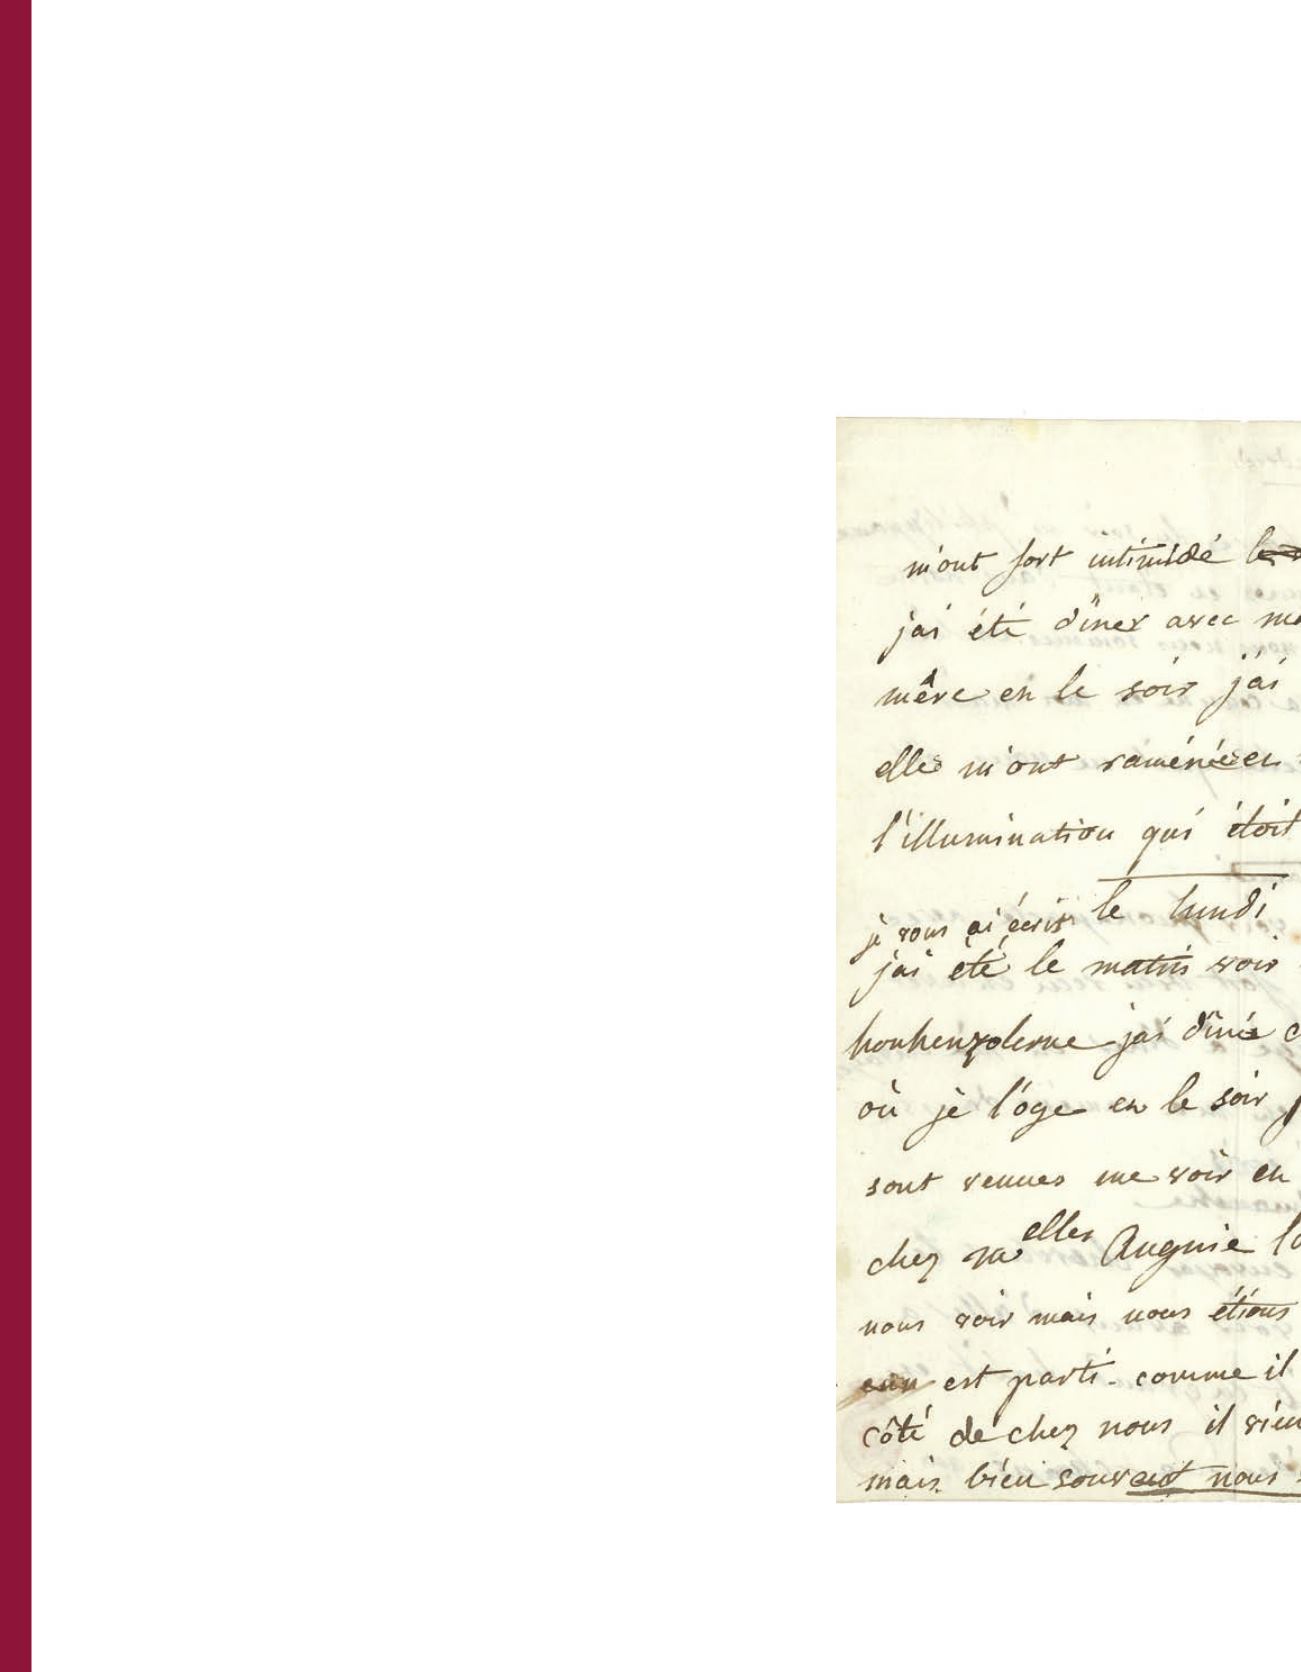 m'ont fort intimidé
j'ai été dîner avec
mère en le soir j'ai
elles m'ont raménéer
l'illumination qui étoit
le lundi
je vous ai écris
j'ai été le matin voir
honhenzolerne j'ai dîné
où jè l'oge en le soir
sont venues me voir en
chez m elles Auguie
nous voir mais nous étions
est parti. comme il
côté de chez nous il
mais bien souvent nous